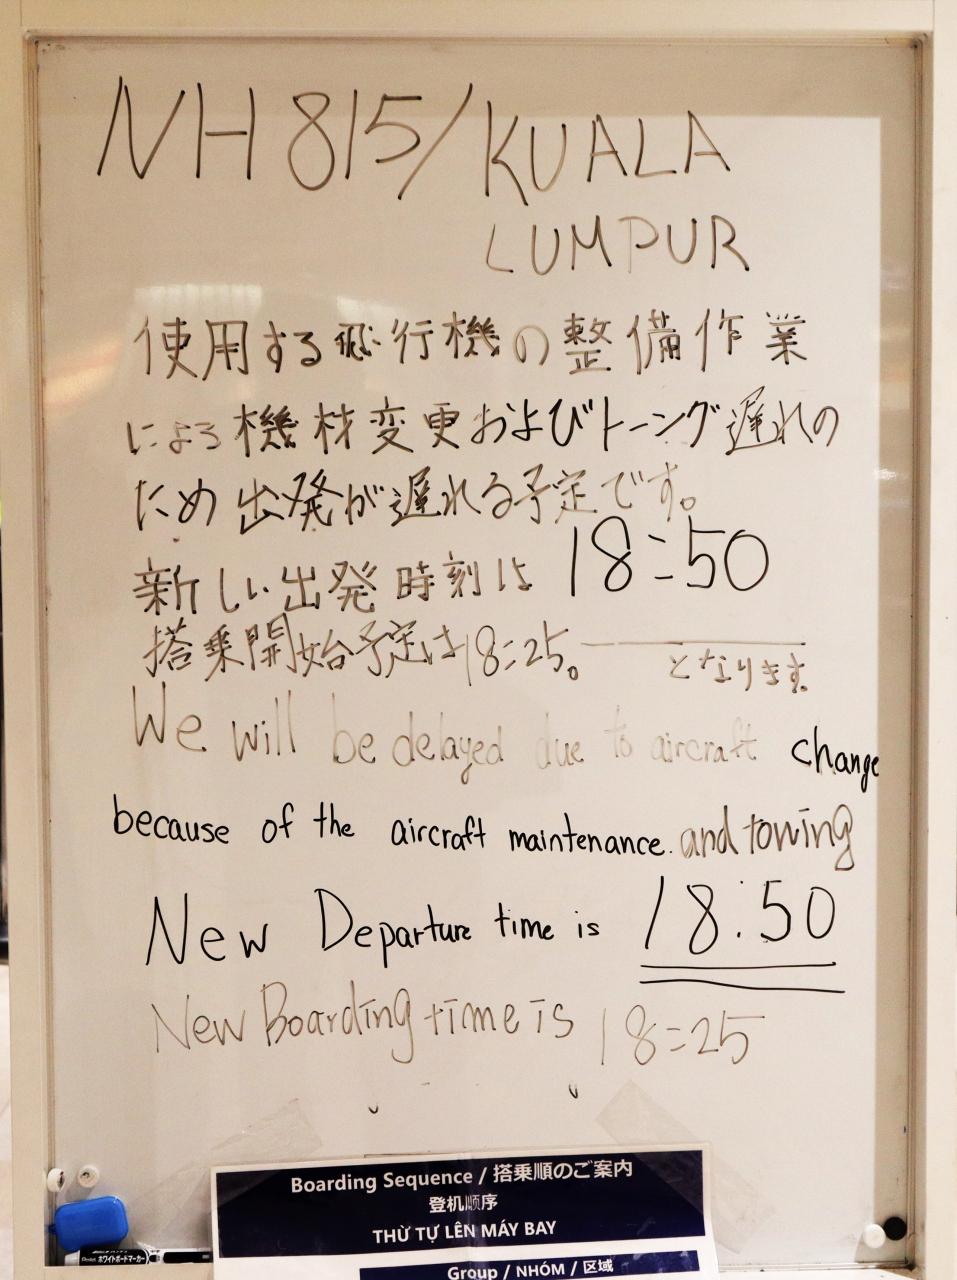 NH815/KUALA
LUMPUR
使用する飛行機の整備作業
による機材変更およびトーング遅れの
ため出発が遅れる予定です。
新しい出発時刻は 18:50
搭乗開始予定は18:25。 となります。
We will be delayed due to aircraft change
because of the aircraft maintenance. and towing
New Departure time is 18:50
New Boarding time is 18:25
Boarding Sequence / 搭乗順のご案内
登机顺序
THỨ TỰ LÊN MÁY BAY
Group / NHÓM / 区域
Pentel ホワイトボードマーカー